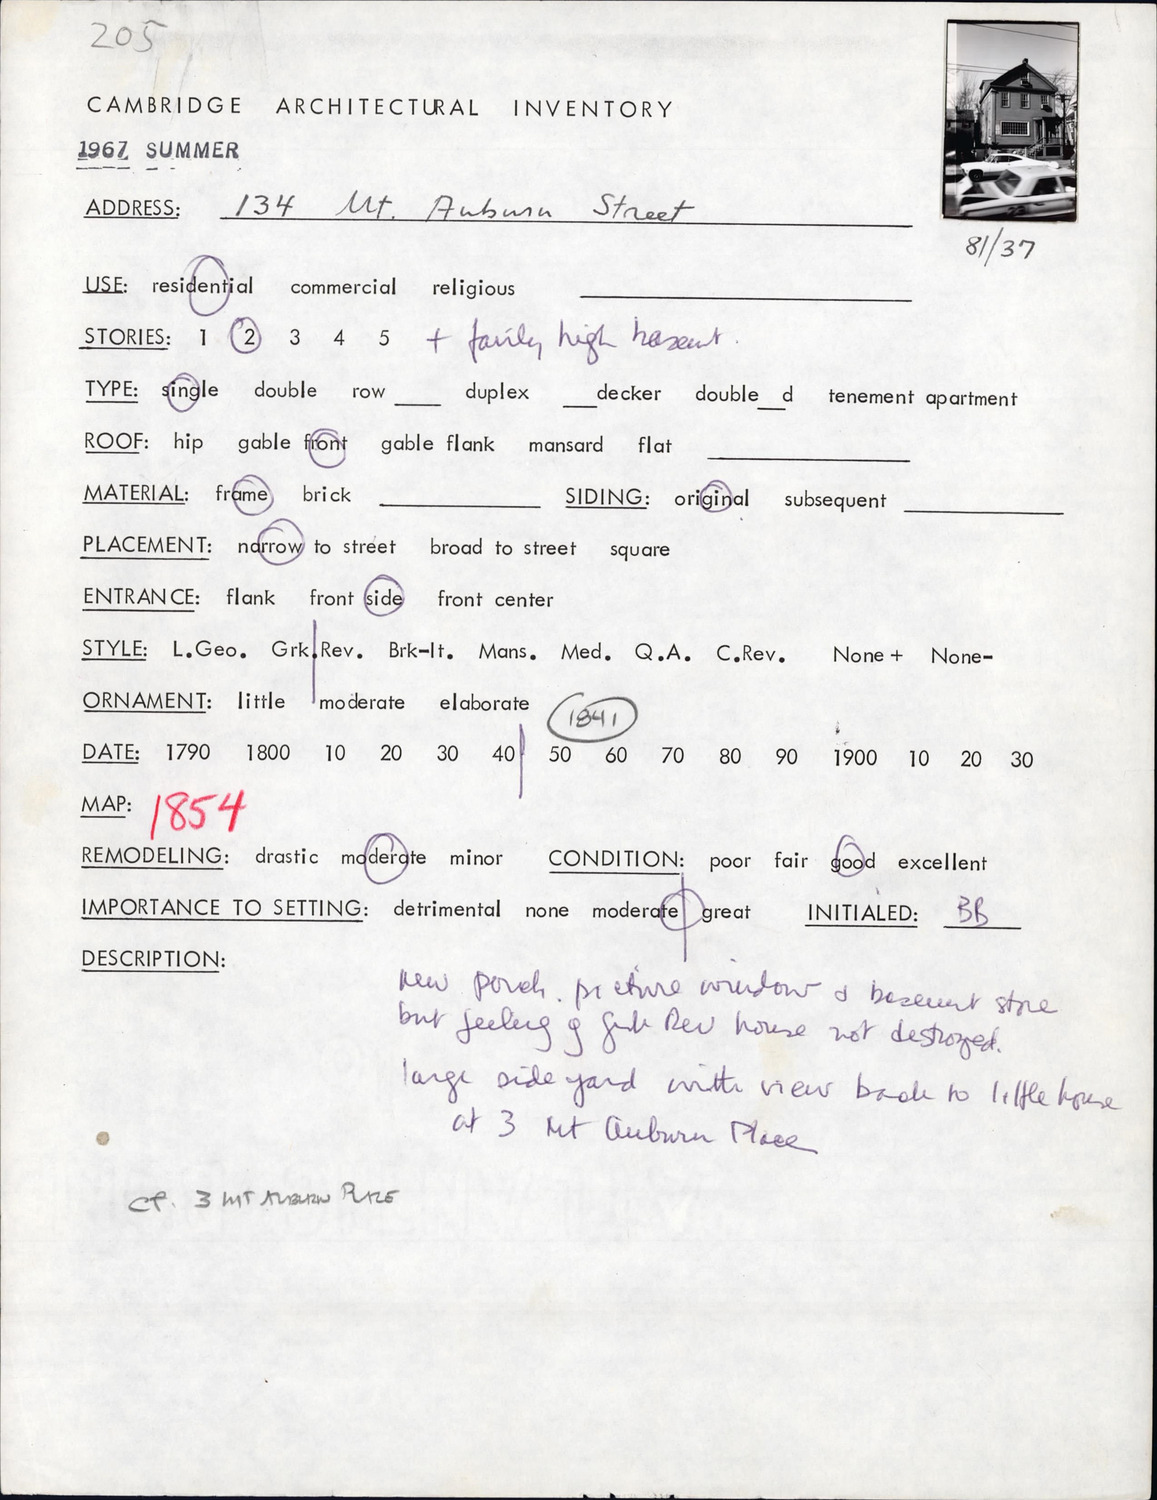 205
CAMBRIDGE ARCHITECTURAL INVENTORY
1967 SUMMER
ADDRESS: 134 Mt. Auburn Street
81/37
USE: residential commercial religious
STORIES: 1 2 3 4 5 + fairly high basemt.
TYPE: single double row ____ duplex ___decker double__d tenement apartment
ROOF: hip gable front gable flank mansard flat
MATERIAL: frame brick SIDING: original subsequent
PLACEMENT: narrow to street broad to street square
ENTRANCE: flank front side front center
STYLE: L.Geo. Grk.Rev. Brk-It. Mans. Med. Q.A. C.Rev. None+ None-
ORNAMENT: little moderate elaborate
1841
DATE: 1790 1800 10 20 30 40 50 60 70 80 90 1900 10 20 30
MAP: 1854
REMODELING: drastic moderate minor CONDITION: poor fair good excellent
IMPORTANCE TO SETTING: detrimental none moderate great INITIALED: BB
DESCRIPTION:
new porch. picture window & basemt store
but feeling of Grk Rev house not destroyed.
large side yard with view back to little house
at 3 Mt Auburn Place
cf. 3 MT AUBURN PLACE